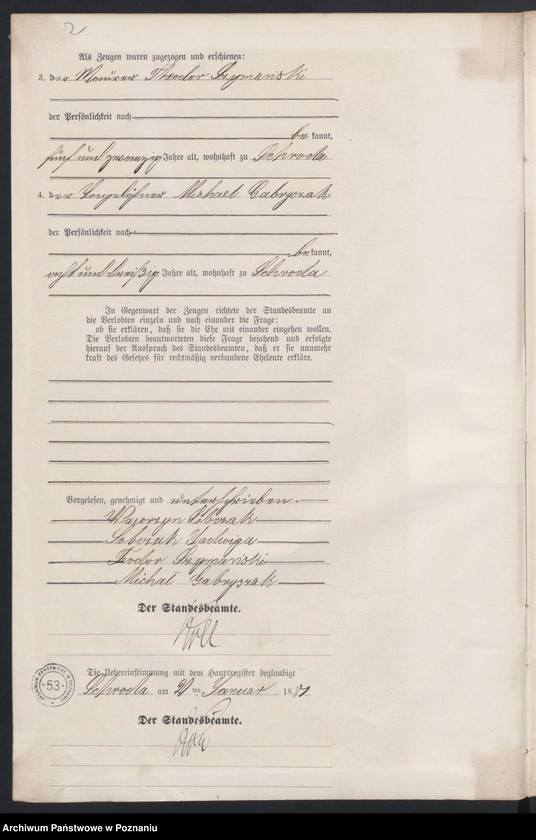 2
Als Zeugen waren zugezogen und erschienen:
3. der Maurer Theodor Szymański
der Persönlichkeit nach
bekannt,
fünf und zwanzig Jahre alt, wohnhaft zu Schroda
4. der Michael Gabryszak
der Persönlichkeit nach
bekannt,
acht und dreißig Jahre alt, wohnhaft zu Schroda
In Gegenwart der Zeugen richtete der Standesbeamte an
die Verlobten einzeln und nach einander die Frage:
ob sie erklären, daß sie die Ehe mit einander eingehen wollen.
Die Verlobten beantworteten diese Frage bejahend und erfolgte
hierauf der Ausspruch des Standesbeamten, daß er sie nunmehr
kraft des Gesetzes für rechtmäßig verbundene Eheleute erkläre.
Vorgelesen, genehmigt und unterschrieben.
Sobczak
Sobczak Jadwiga
Teodor Szymański
Michał Gabryszak
Der Standesbeamte.
Die Uebereinstimmung mit dem Hauptregister beglaubigt
Schroda am ten Januar 1881
Der Standesbeamte.
ARCHIWUM PAŃSTWOWE W POZNANIU
53
Archiwum Państwowe w Poznaniu